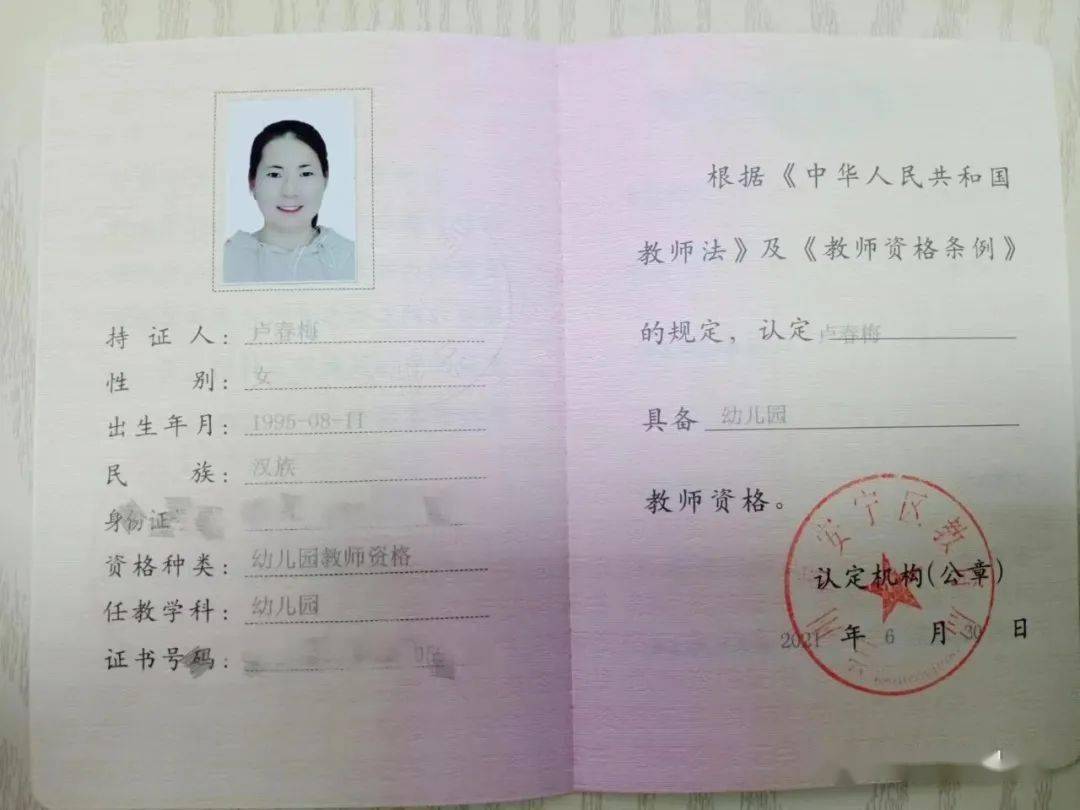 持证人：卢春梅
性别：女
出生年月：1995-08-11
民族：汉族
身份证
资格种类：幼儿园教师资格
任教学科：幼儿园
证书号码：
根据《中华人民共和国
教师法》及《教师资格条例》
的规定，认定卢春梅
具备 幼儿园
教师资格。
安宁区教
认定机构(公章)
2021 年 6 月 30 日